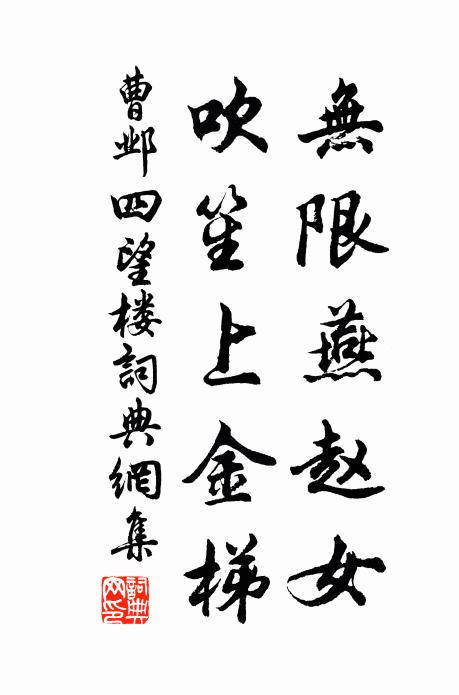 無限燕赵女
吹笙上金梯
曹邺四望楼詞典網集
詞典網印